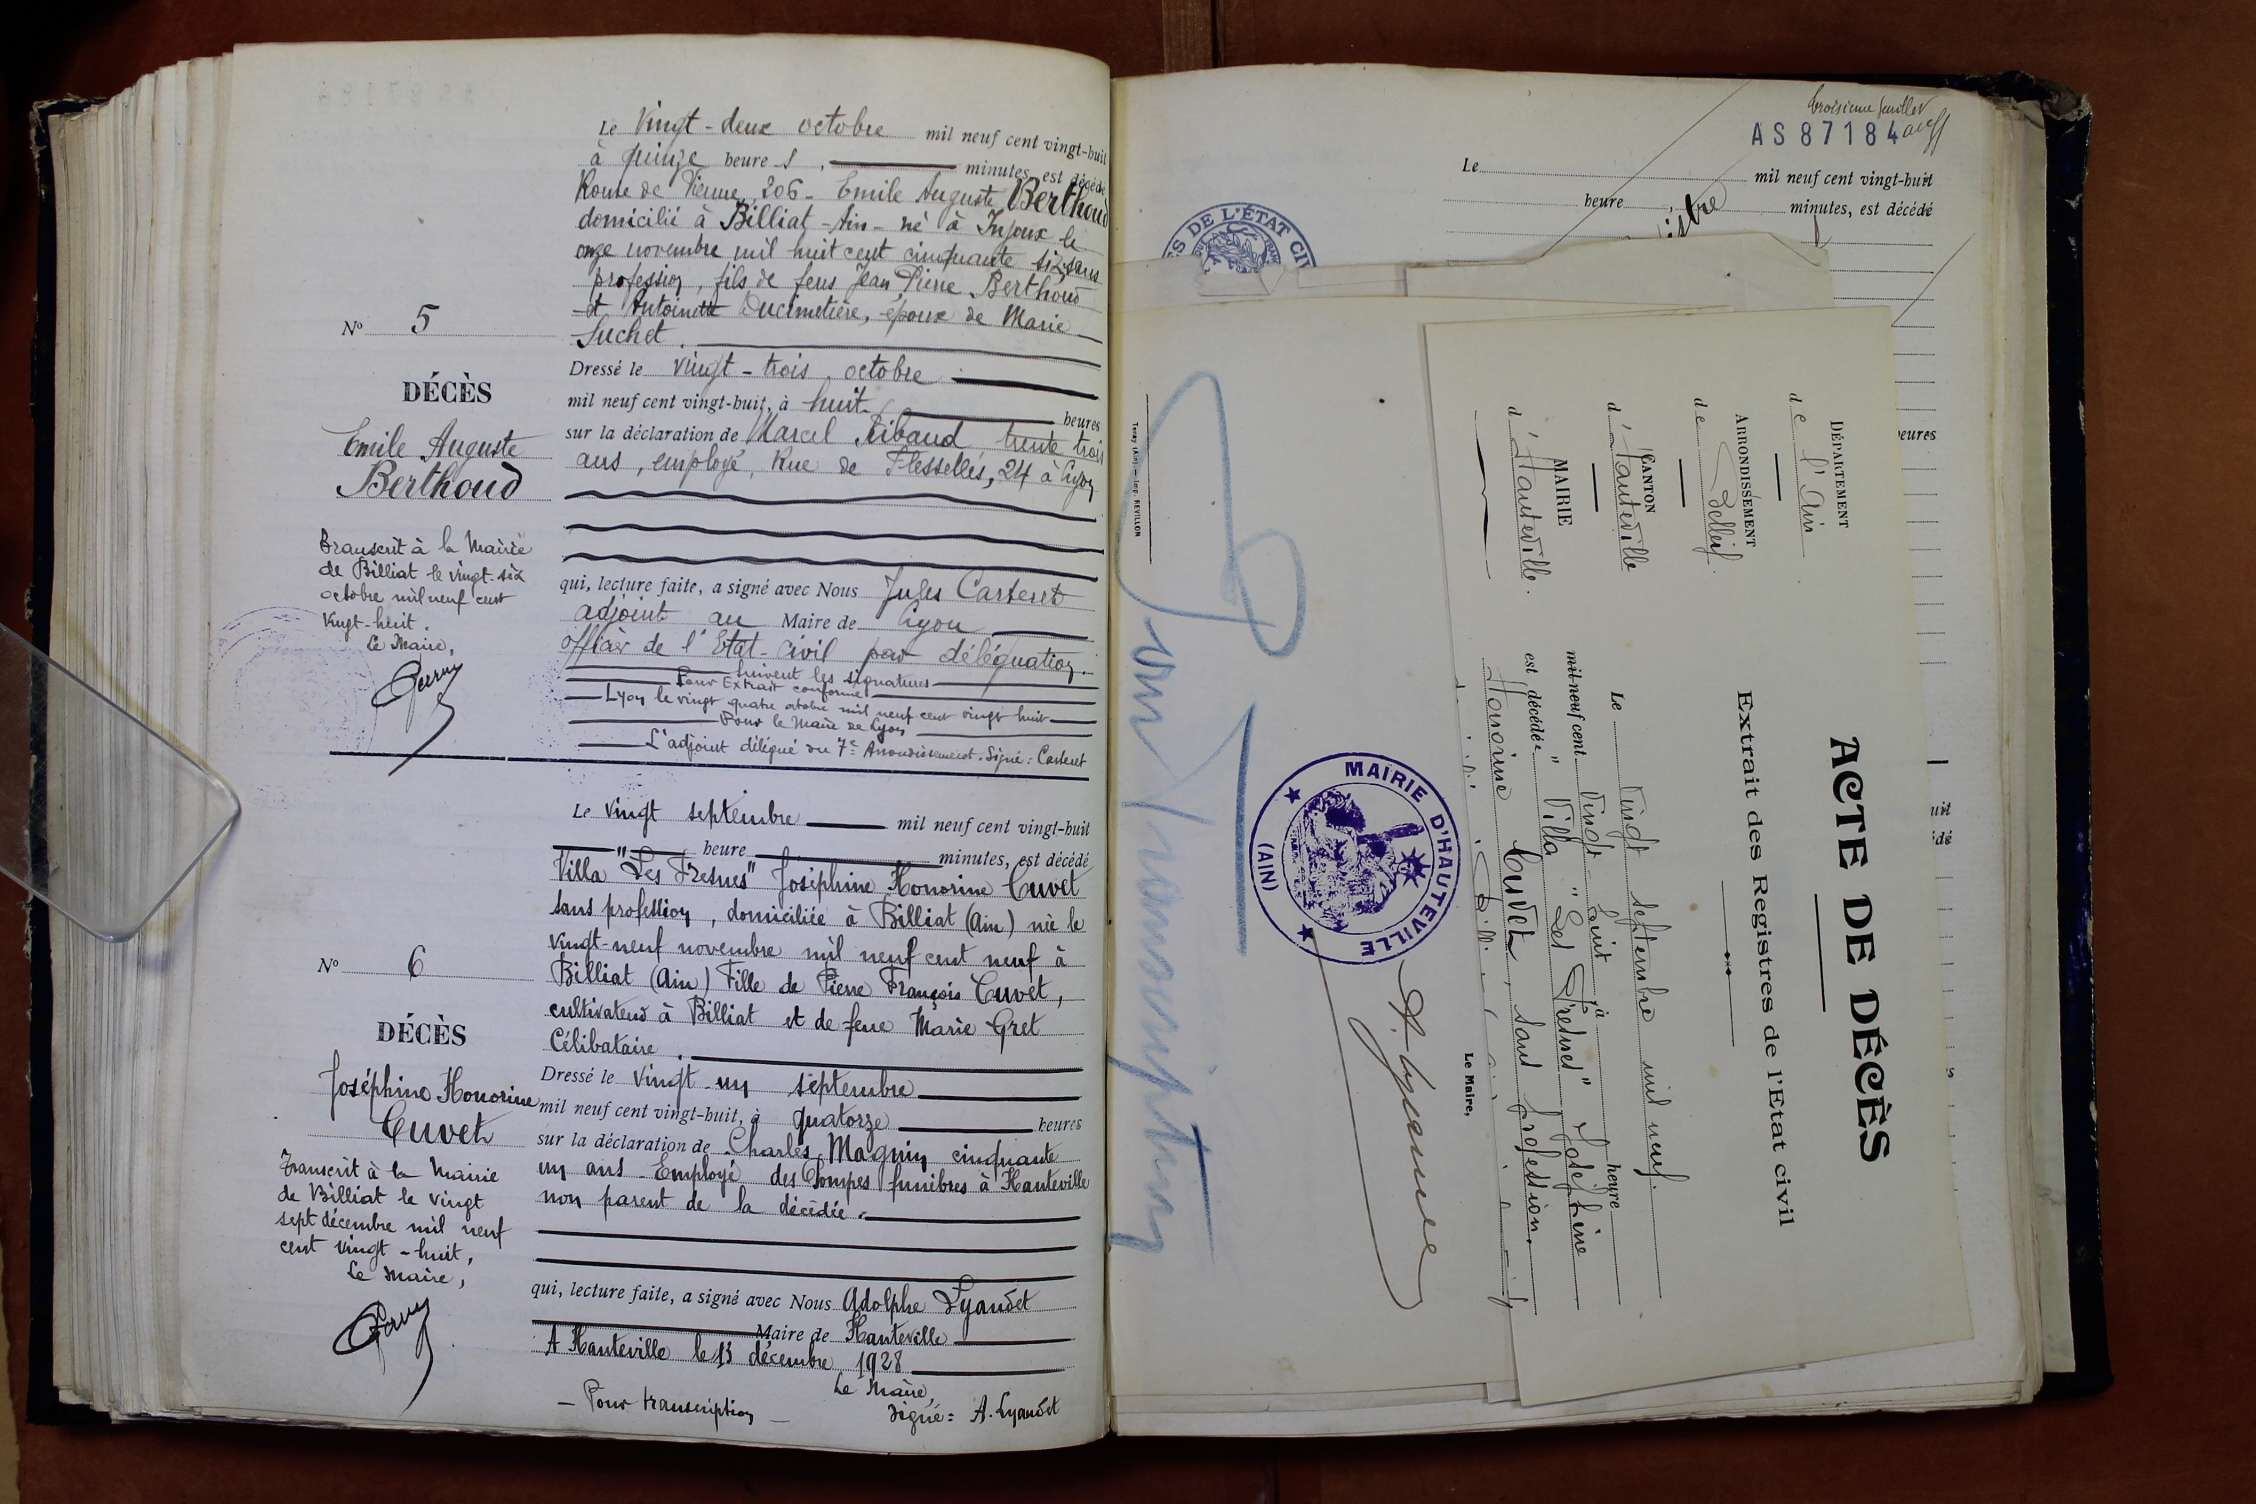 Le Vingt-deux octobre mil neuf cent vingt-huit
à quinze heures, minutes, est décédé
Route de Vienne, 206 - Emile Auguste Berthoud
domicilié à Billiat - Ain - né à Injoux le
onze novembre mil huit cent cinquante six, sans
profession, fils de feus Jean Pierre Berthoud
et Antoinette Ducimetière, époux de Marie
Suchet.
Nº 5
DÉCÈS
Emile Auguste
Berthoud
Dressé le vingt-trois octobre
mil neuf cent vingt-huit, à huit heures
sur la déclaration de Marcel Ribaud trente trois
ans, employé, Rue de Flesselles, 24 à Lyon
qui, lecture faite, a signé avec Nous Jules Carteret
adjoint au Maire de Lyon
officier de l'Etat-civil par délégation.
Suivent les signatures
Pour Extrait conforme
Lyon le vingt quatre octobre mil neuf cent vingt huit
Pour le Maire de Lyon
L'adjoint délégué du 7e Arrondissement. Signé: Carteret
Transcrit à la Mairie
de Billiat le vingt-six
octobre mil neuf cent
vingt-huit.
Le Maire,
Le vingt septembre mil neuf cent vingt-huit
heure minutes, est décédé
Villa "Les Fresnes" Joséphine Honorine Cuvet
sans profession, domiciliée à Billiat (Ain) née le
vingt-neuf novembre mil neuf cent neuf à
Billiat (Ain) Fille de Pierre François Cuvet,
cultivateur à Billiat et de feue Marie Gret
Célibataire.
Nº 6
DÉCÈS
Joséphine Honorine
Cuvet
Dressé le vingt-un septembre
mil neuf cent vingt-huit, à quatorze heures
sur la déclaration de Charles Magnin cinquante
un ans - Employé des Pompes funèbres à Hauteville
non parent de la décédée.
qui, lecture faite, a signé avec Nous Adolphe Lyaudet
Maire de Hauteville
A Hauteville le 13 décembre 1928
Le Maire,
- Pour transcription - Signé: A. Lyaudet
Transcrit à la Mairie
de Billiat le vingt
sept décembre mil neuf
cent vingt-huit,
Le Maire,
troisième feuillet
AS 87184
Le mil neuf cent vingt-huit
heure, minutes, est décédé
DE L'ÉTAT CIV
heures
DÉPARTEMENT
de l'Ain
ARRONDISSEMENT
de Belley.
CANTON
d'Hauteville
MAIRIE
d'Hauteville.
ACTE DE DÉCÈS
Extrait des Registres de l'Etat civil
Le Vingt septembre mil neuf
mil neuf cent Vingt-huit, à heure
est décédée " Villa "Les Fresnes" Joséphine
Honorine Cuvet, sans profession,
Le Maire,
MAIRIE D'HAUTEVILLE
(AIN)
Pour transcription
Tenay (Ain). — Imp. REVILLON